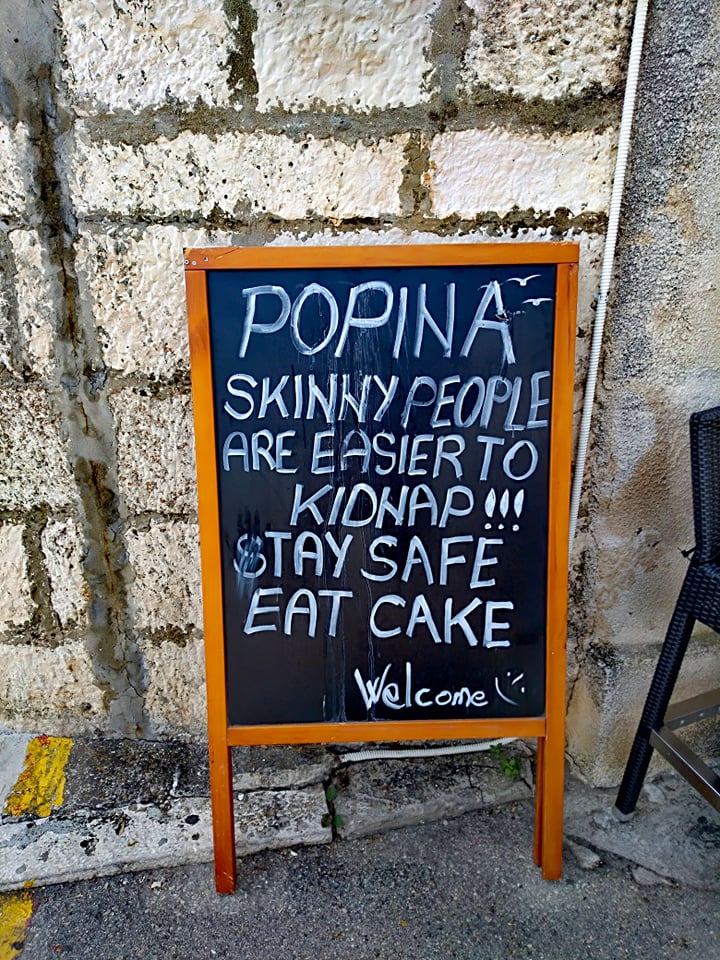 POPINA
SKINNY PEOPLE
ARE EASIER TO
KIDNAP!!!
STAY SAFE
EAT CAKE
Welcome